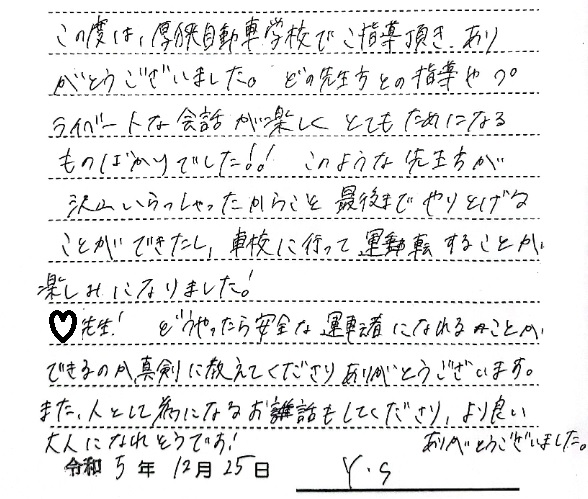 この度は、厚狭自動車学校でご指導頂き あり
がとうございました。 どの先生方との指導やプ
ライベートな会話が楽しく とてもためになる
ものばかりでした!! このような先生方が
沢山いらっしゃったからこそ 最後まで やりとげる
ことができたし、車校に行って 運動転することが
楽しみになりました!
♡先生! どうやったら安全な 運転者になれる ことが
できるのか真剣に教えてくださりありがとうございます。
また、人として為になるお雑話もしてくださり、より良い
大人になれそうです! ありがとうございました。
令和 5 年 12 月 25 日 Y.S